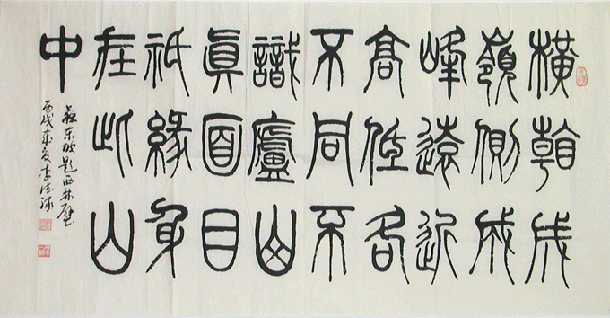 橫看成
嶺側成
峰遠近
高低各
不同不
識廬山
眞面目
祇緣身
在此山
中
蘇東坡題西林壁
丙戌年夏李